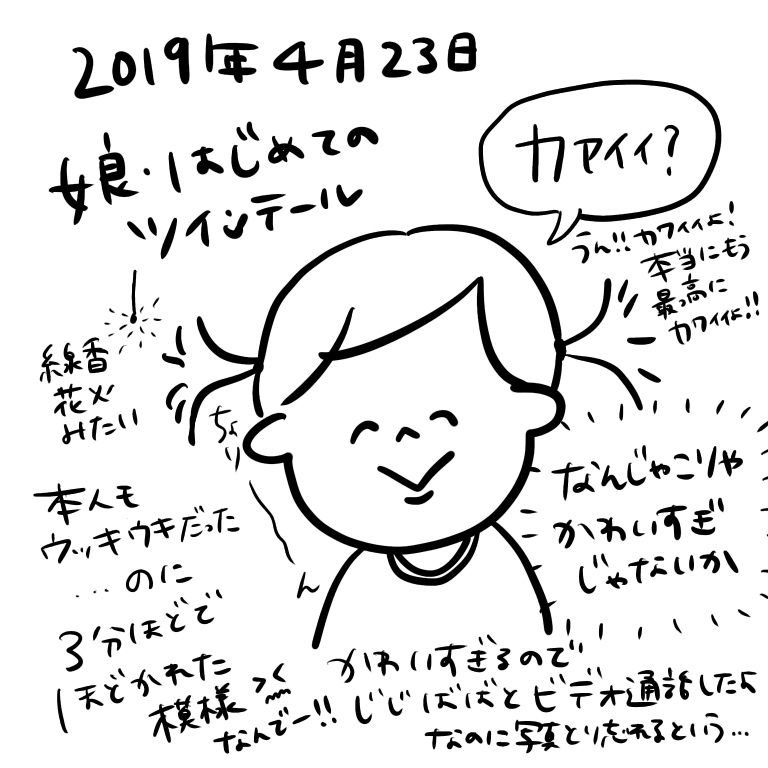 2019年4月23日
娘・はじめての
ツインテール
カワイイ?
うん!!カワイイよ!
本当にもう
最高に
カワイイよ!!
線香
花火
みたい
ちょり
ん
なんじゃこりゃ
かわいすぎ
じゃないか
本人も
ウッキウキだった
…のに
3分ほどで
ほどかれた
模様
なんでー!!
かわいすぎるので
じじばばとビデオ通話したよ
なのに写真とり忘れるという…